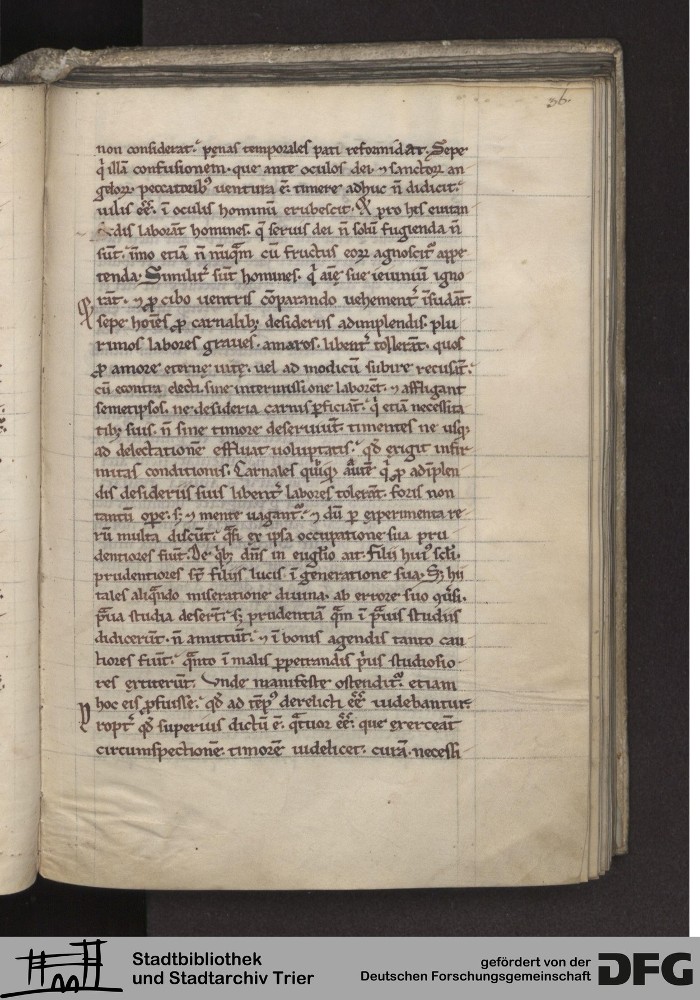 36.
non considerat. pęnas temporales pati reformidat. Sepe
q̇ illā confusionem. que ante oculos dei. ⁊ sanctoꝝ an
geloꝝ. peccatoribꝰ uentura ē. timere adhuc ñ didicit.
uilis eē̄. ī oculis hominū erubescit. Et pro his euitan
dis laborāt homines. q̄ seruis dei ñ solū fugienda ñ
sūt. īmo etiā ñ nūq̄m cū fructus eoꝝ agnoscit᷑ appe
tenda. Similit᷑ sūt homines. q̇ aīę sue ieiuniū igno
rāt. ⁊ ꝓ cibo uentris cōparando uehement᷑ īsudāt.
Et sepe hoīes ꝓ carnalibꝫ desideriis adimplendis. plu
rimos labores graues. amaros. libent᷑ tollerāt. quos
ꝓ amore eternę uitę. uel ad modicū subire recusāt.
cū econtra electi. sine intermissione laborēt. ⁊ affligant
semetipsos. ne desideria carnis ꝑficiāt. q̇ etiā necessita
tibꝫ suis. ñ sine timore deseruiūt. timentes ne usqꝫ
ad delectationē effluat uoluptatis. qd̄ exigit infir
mitas conditionis. Carnales quiqꝫ aūte q̇ ꝓ adīplen
dis desideriis suis libent᷑ labores tolerāt. foris non
tantū ope. sꝫ ⁊ mente uagant᷑. ⁊ dū ꝑ experimenta re
rū multa discūt. q̄si ex ipsa occupatione sua pru
dentiores fiūt. De q̇bꝫ dn̄s in euglio ait. Filii huiꝰ scl̄i.
prudentiores sūt filiis lucis. ī generatione sua. Sꝫ hii
tales aliq̄ndo miseratione diuina. ab errore suo ꝯūsi.
p̄ua studia deserūt. sꝫ prudentiā q̄m ī p̄uis studiis
didicerūt. ñ amittūt. ⁊ ī bonis agendis tanto cau
tiores fiūt. q̄nto ī malis ꝑpetrandis p̓us studiosio
res extiterūt. Vnde manifeste ostendit᷑. etiam
hoc eis ꝓfuisse. qd̄ ad tēpꝰ derelicti eē̄ uidebantur.
Propt᷑ qd̄ superius dictū ē. q̄tuor eē̄. que exerceāt
circumspectionē. timorē uidelicet. curā. necessi
Stadtbibliothek
und Stadtarchiv Trier
gefördert von der
Deutschen Forschungsgemeinschaft
DFG